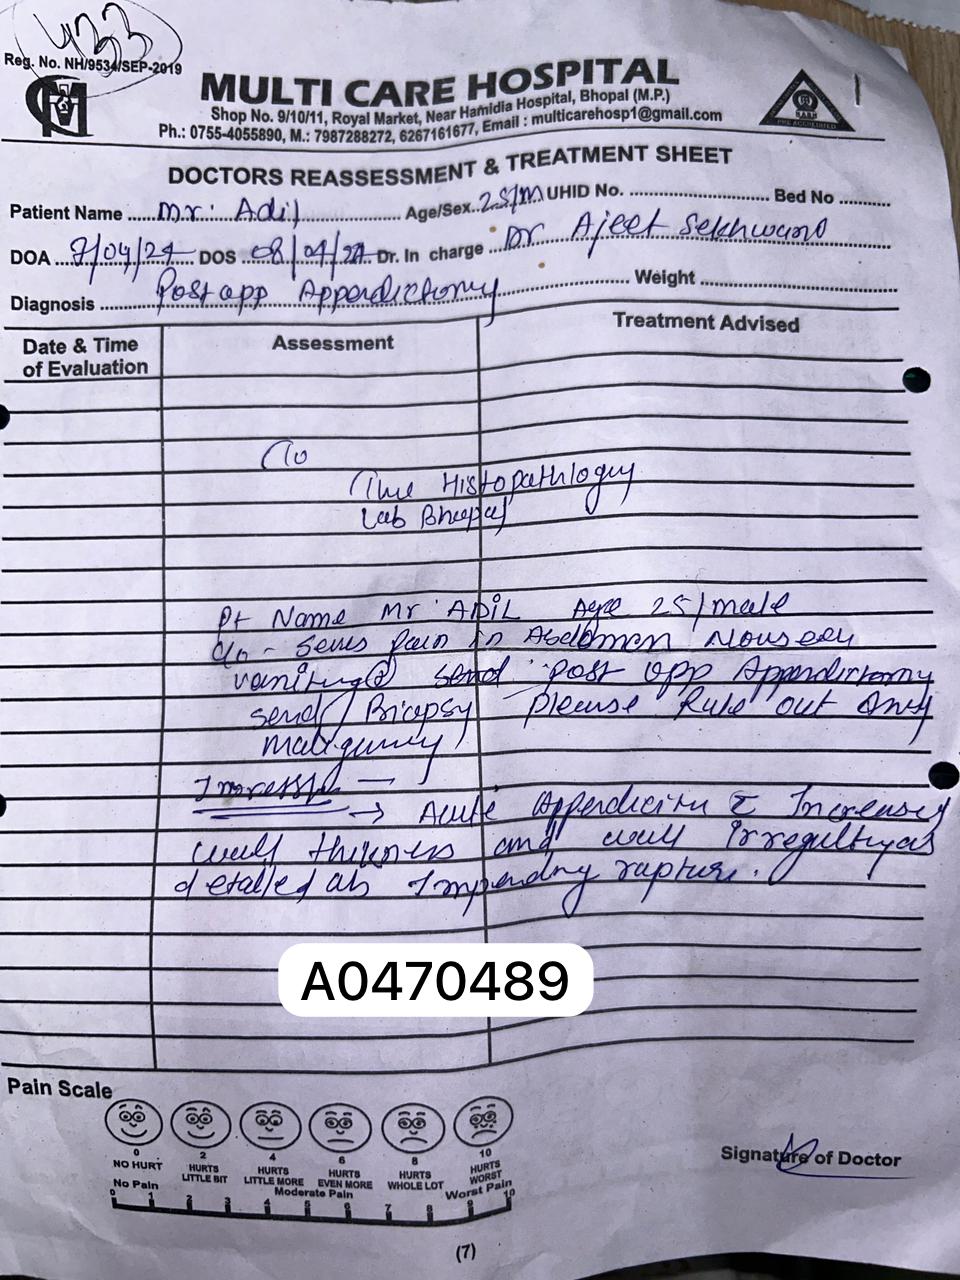 433
Reg. No. NH/9534/SEP-2019
MULTI CARE HOSPITAL
Shop No. 9/10/11, Royal Market, Near Hamidia Hospital, Bhopal (M.P.)
Ph.: 0755-4055890, M.: 7987288272, 6267161677, Email : multicarehosp1@gmail.com
PRE ACCREDITED
DOCTORS REASSESSMENT & TREATMENT SHEET
Patient Name Mr. Adil Age/Sex 25/M UHID No. Bed No
DOA 7/04/24 DOS 08/04/24 Dr. In charge Dr Ajeet Sekhward
Diagnosis Post opp Appendictomy Weight
Date & Time of Evaluation Assessment Treatment Advised
To
The Histopathlogy
Lab Bhopal
Pt Name Mr ADiL Age 25/male
C/o - Sevis pain in Abdomen
send Post opp Appendictomy
send Biopsy please Rule out Any
Impression
→ Acute Appendicitis c Increased
wall thikness and wall
detailed as Impending rapture.
A0470489
Pain Scale
0 2 4 6 8 10
NO HURT HURTS LITTLE BIT HURTS LITTLE MORE HURTS EVEN MORE HURTS WHOLE LOT HURTS WORST
No Pain Moderate Pain Worst Pain
0 1 2 3 4 5 6 7 8 9 10
Signature of Doctor
(7)